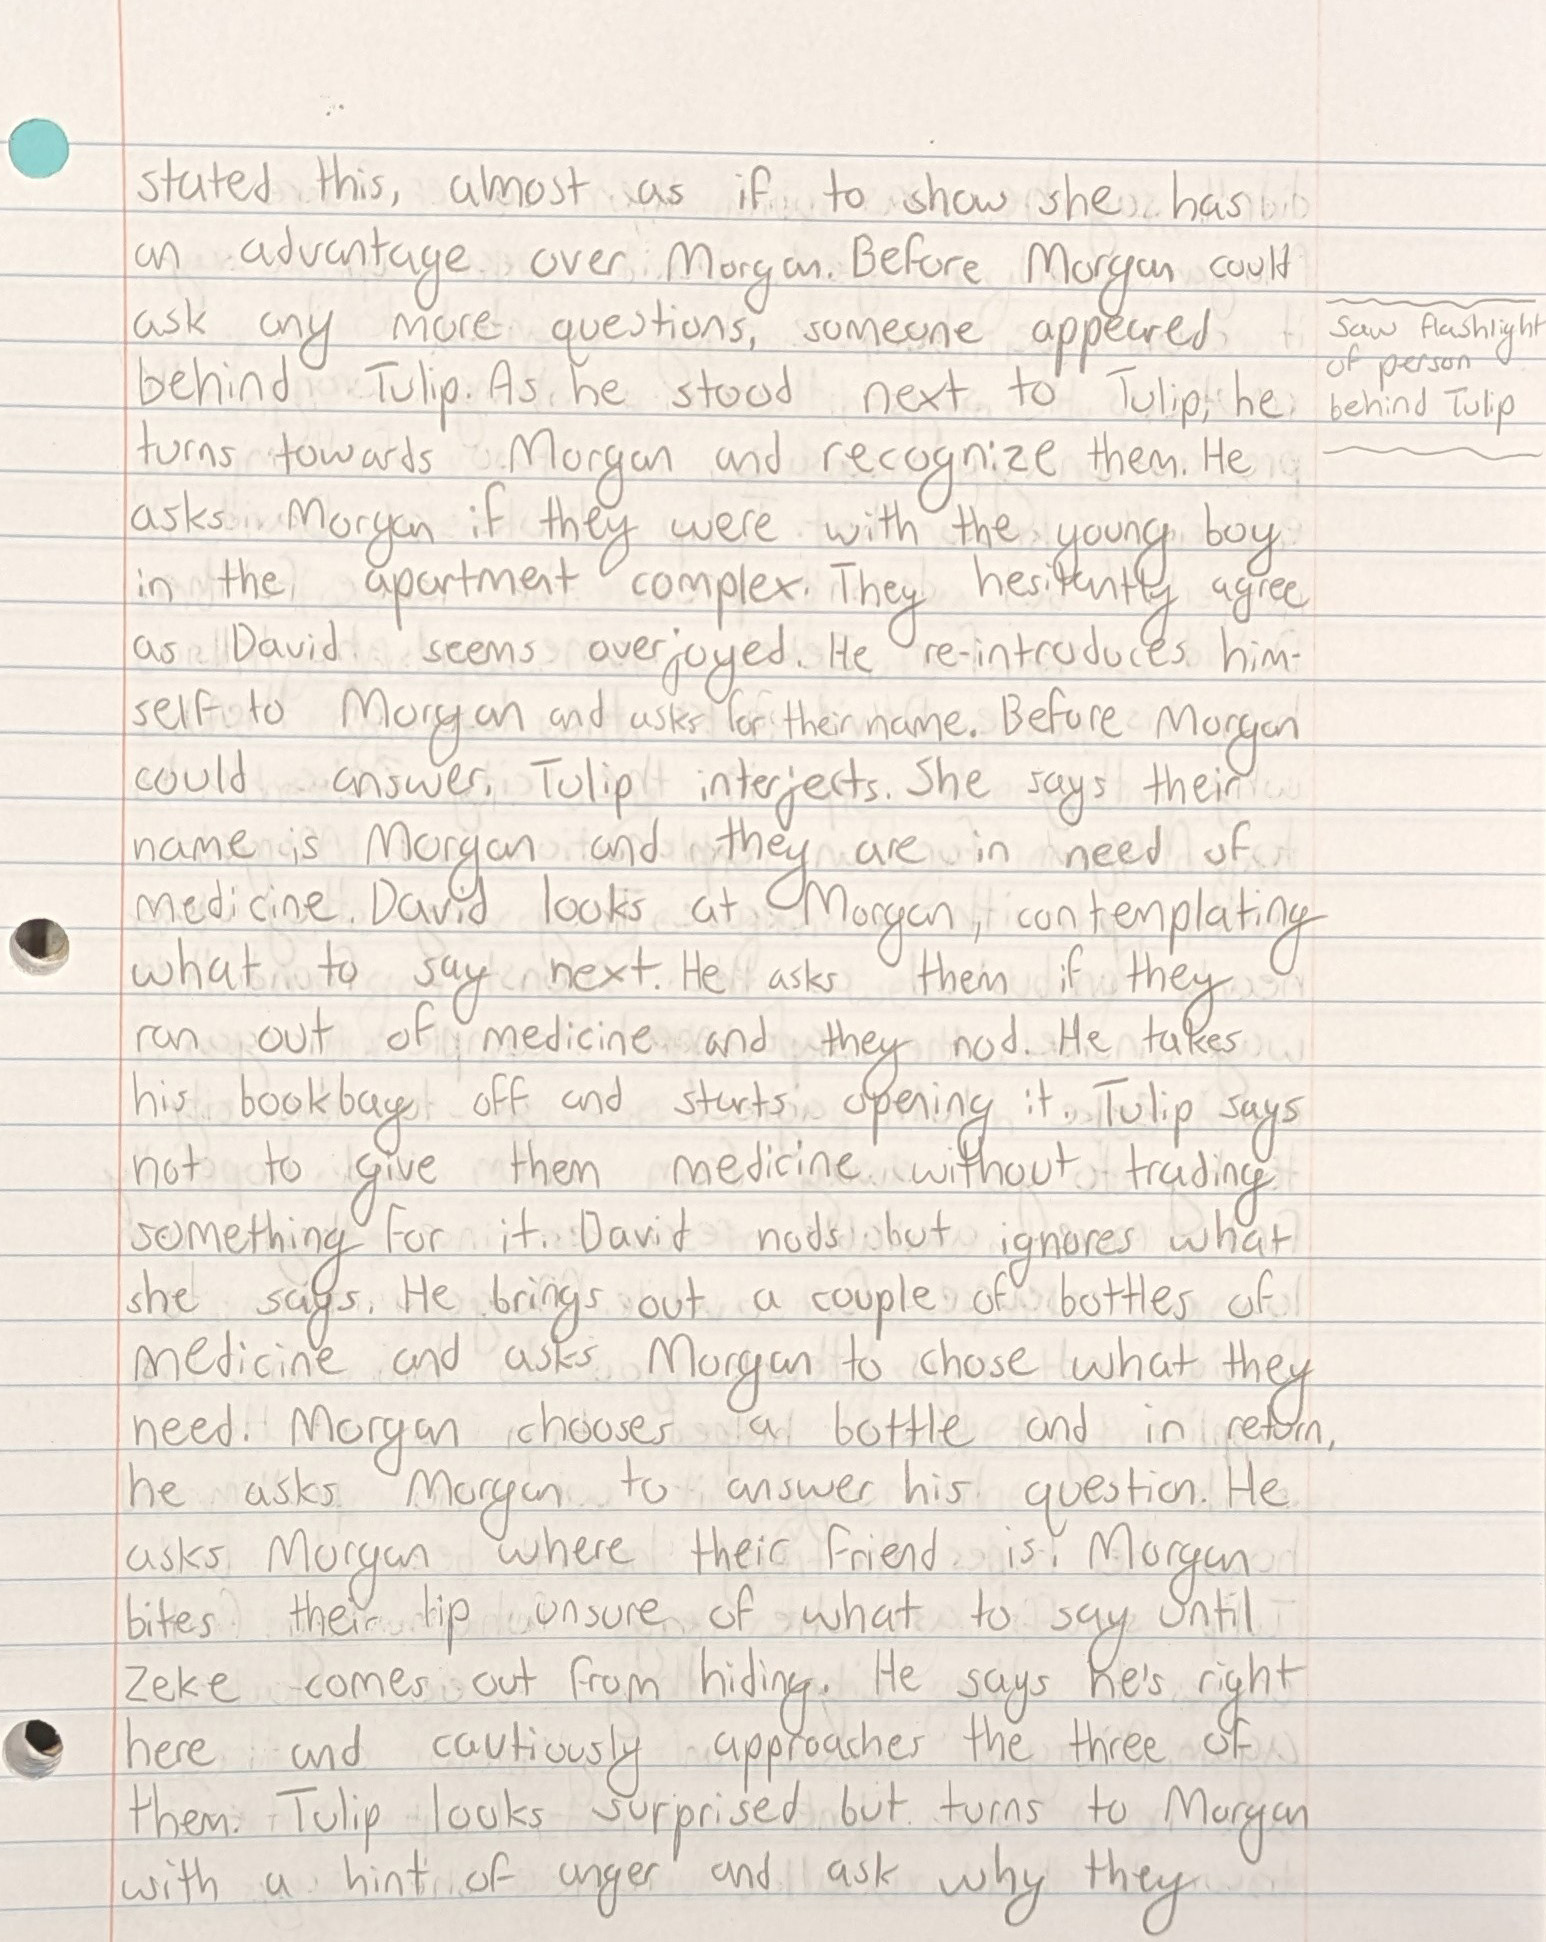 stated this, almost as if to show she has
an advantage over Morgan. Before Morgan could
ask any more questions, someone appeared
behind Tulip. As he stood next to Tulip, he
turns towards Morgan and recognize them. He
asks Morgan if they were with the young boy
in the apartment complex. They hesitantly agree
as David seems overjoyed. He re-introduces him-
self to Morgan and asks for their name. Before Morgan
could answer, Tulip interjects. She says their
name is Morgan and they are in need of
medicine. David looks at Morgan, contemplating
what to say next. He asks them if they
ran out of medicine and they nod. He takes
his bookbag off and starts opening it. Tulip says
not to give them medicine without trading
something for it. David nods but ignores what
she says. He brings out a couple of bottles of
medicine and asks Morgan to chose what they
need. Morgan chooses a bottle and in return,
he asks Morgan to answer his question. He
asks Morgan where their friend is. Morgan
bites their lip unsure of what to say until
Zeke comes out from hiding. He says he's right
here and cautiously approaches the three of
them. Tulip looks surprised but turns to Morgan
with a hint of anger and ask why they
Saw flashlight
of person
behind Tulip